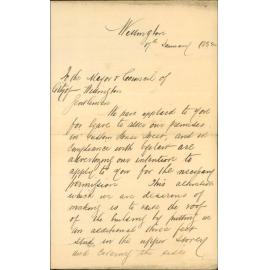 Wellington
17th January 1885
To the Mayor & Council of
City of Wellington
Gentlemen
We have applied to you
for leave to alter our premises
in Custom House Street, and in
compliance with bylaw are
advertising our intention to
apply to you for the necessary
permission This alteration
which we are desirous of
making is to raise the roof
of the building by putting in
an additional three feet
in the upper storey
and covering the sides